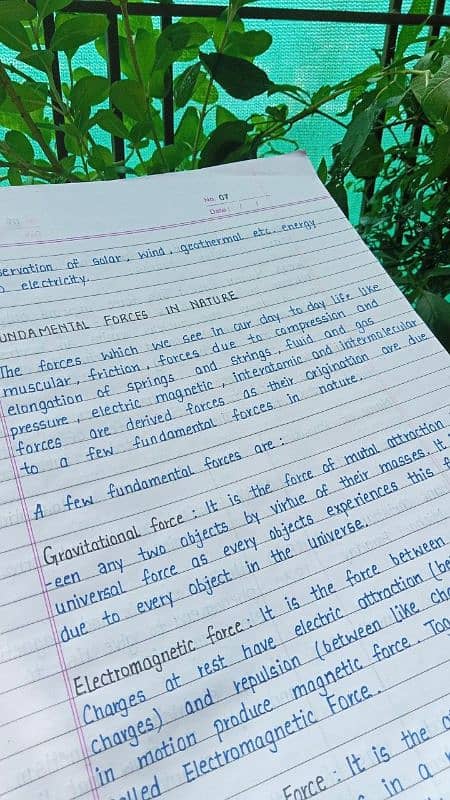 No. 07
Date: / /
servation of solar, wind, geothermal etc. energy
o electricity.
UNDAMENTAL FORCES IN NATURE
The forces which we see in our day to day life like
muscular, friction, forces due to compression and
elongation of springs and strings, fluid and gas
pressure, electric magnetic, interatomic and intermolecular
forces are derived forces as their origination are due
to a few fundamental forces in nature.
A few fundamental forces are :
Gravitational force : It is the force of mutal attraction
-een any two objects by virtue of their masses. It
universal force as every objects experiences this f
due to every object in the universe.
Electromagnetic force : It is the force between
Charges at rest have electric attraction (be
charges) and repulsion (between like cha
in motion produce magnetic force. Tog
alled Electromagnetic Force.
Force : It is the
in a